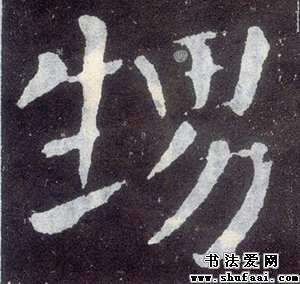 甥
书法爱网
www.shufaai.com